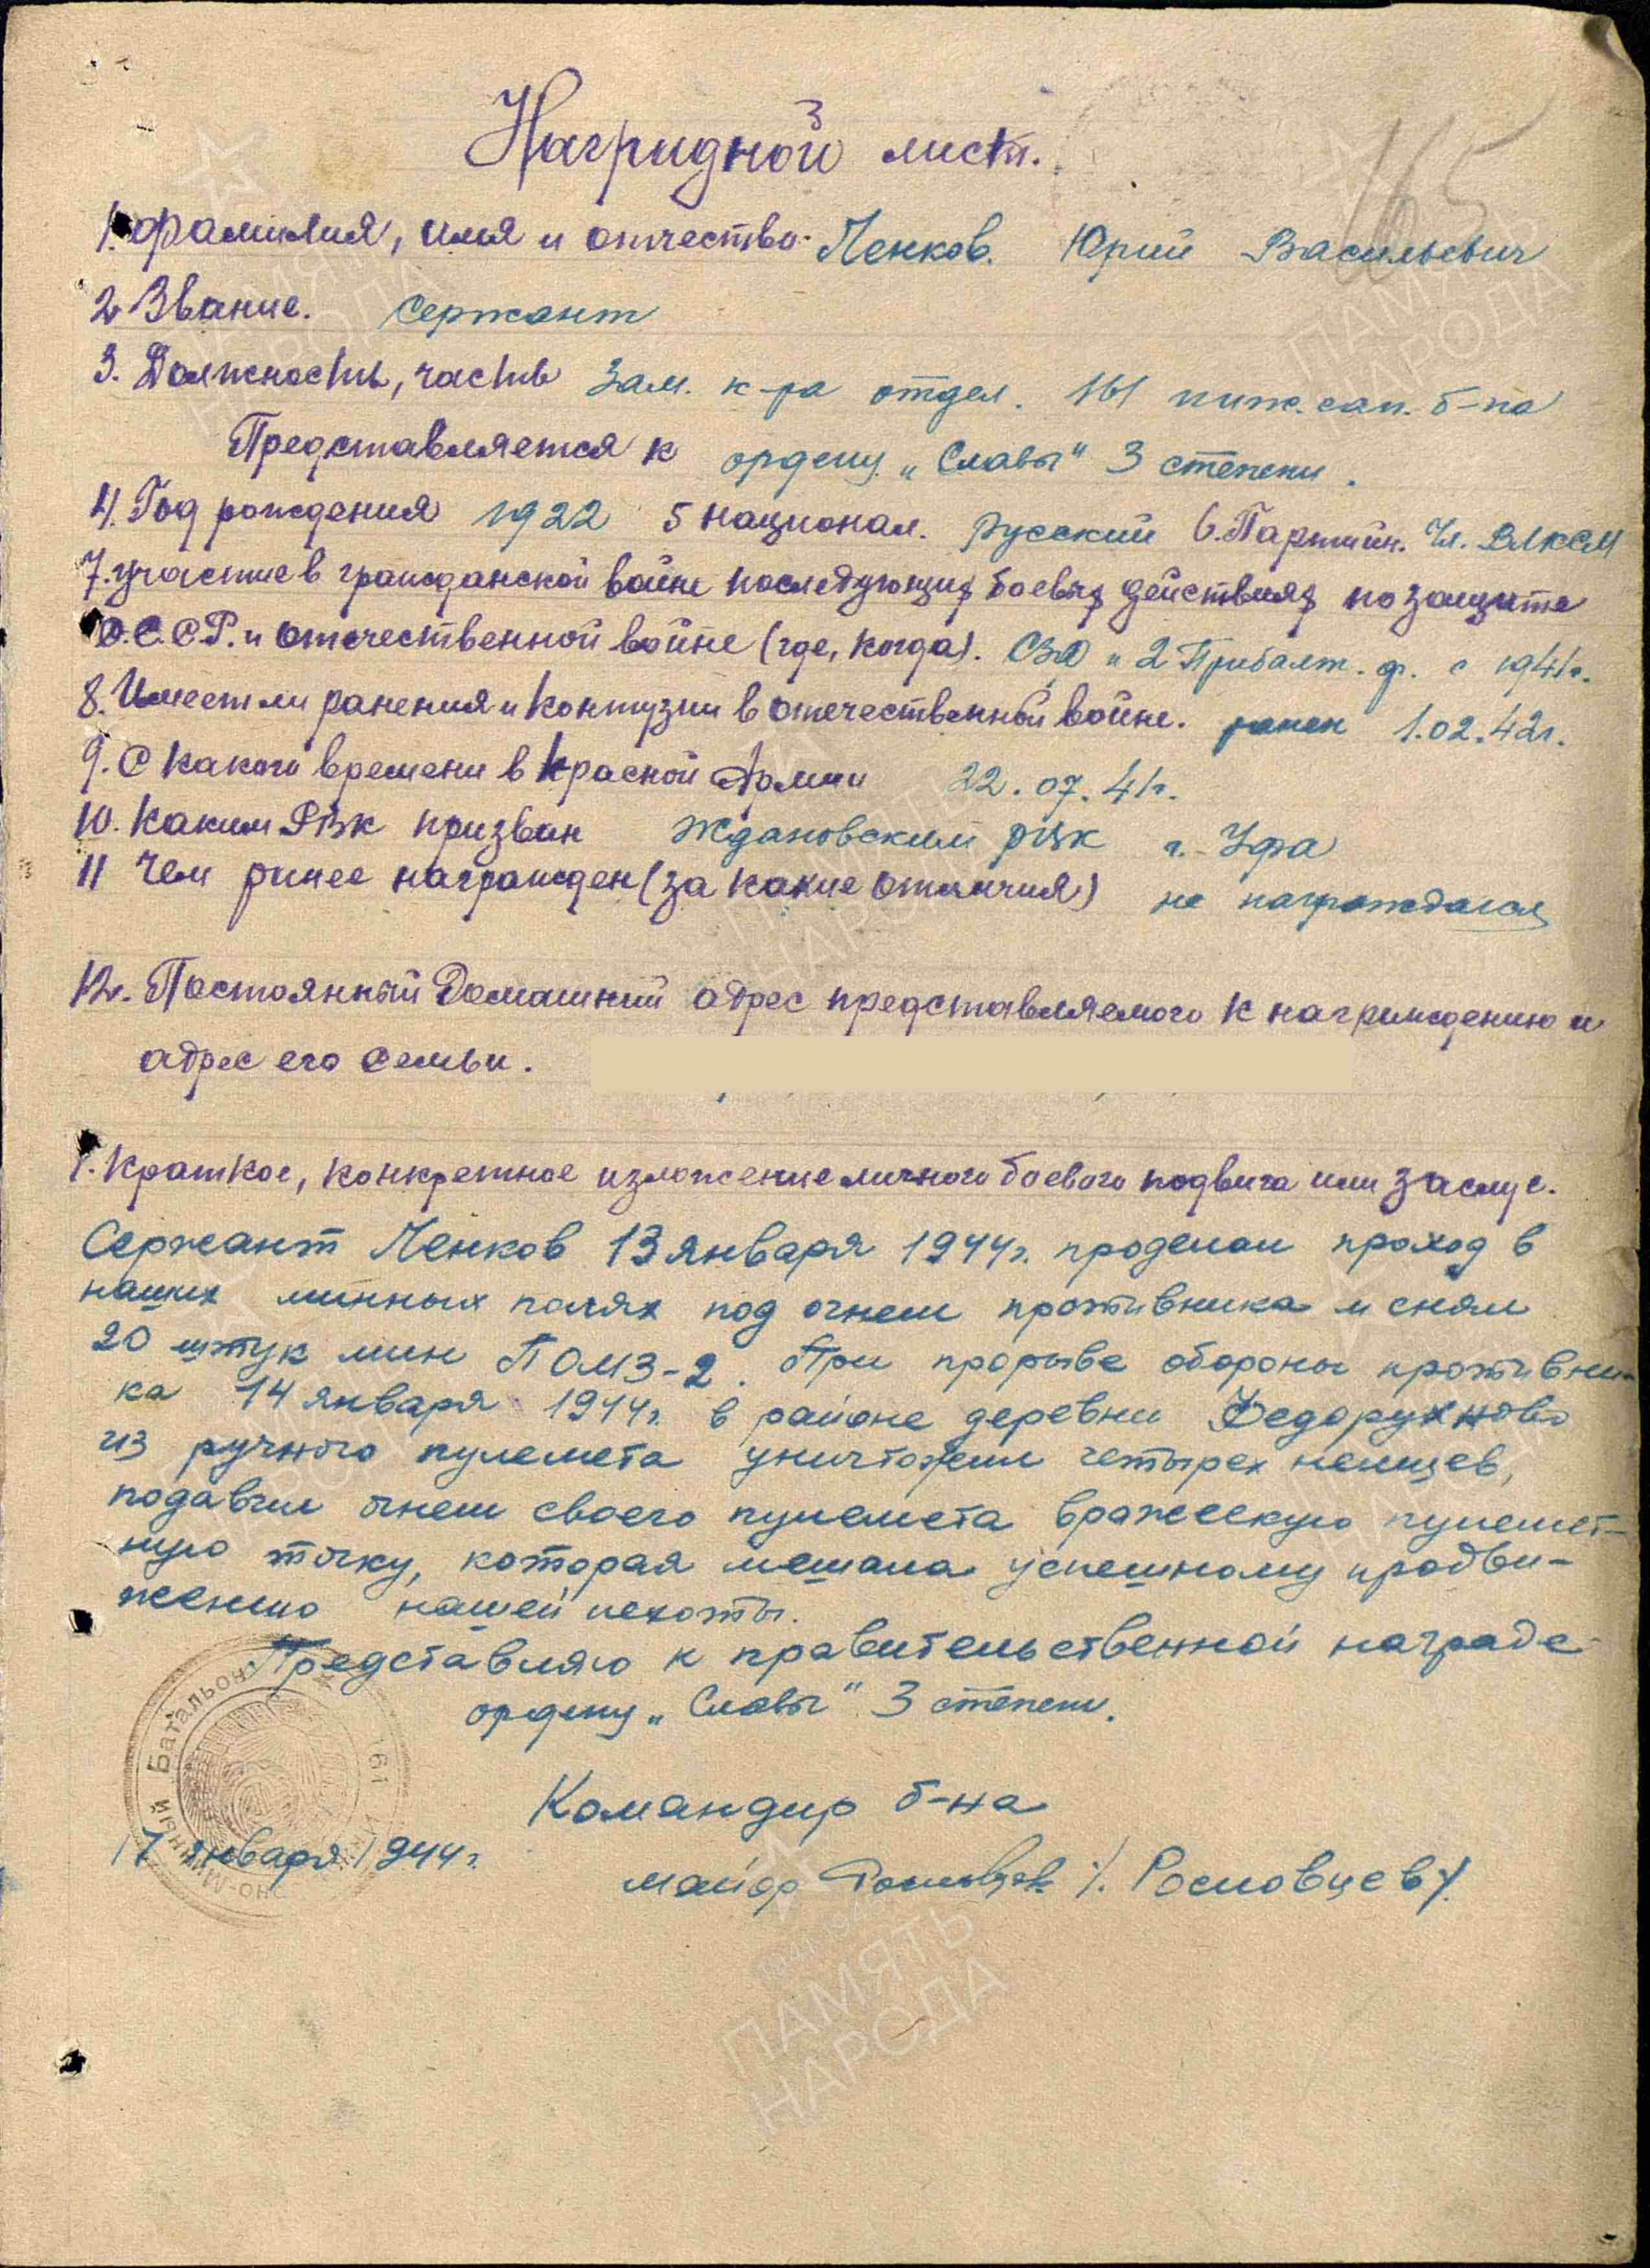 165
Наградной лист.
1. Фамилия, имя и отчество. Ленков. Юрий Васильевич
2 Звание. Сержант
3. Должность, часть Зам. к-ра отдел. 161 инж. сап. б-на
Представляется к ордену "Славы" 3 степени.
4. Год рождения 1922 5 национал. русский 6. Партийн. Чл. ВЛКСМ
7. участие в гражданской войне последующих боевых действиях по защите
С.С.С.Р. и отечественной войне (где, когда). СЗФ и 2 Прибалт. ф. с 1941г.
8. Имеет ли ранения и контузии в отечественной войне. ранен 1.02.42г.
9. С какого времени в Красной Армии 22.07.41г.
10. Каким РВК призван Ждановским РВК г. Уфа
11 Чем ранее награжден (за какие отличия) не награждался
12. Постоянный домашний адрес представляемого к награждению и
адрес его семьи.
1. Краткое, конкретное изложение личного боевого подвига или заслуг.
Сержант Ленков 13 января 1944г. проделал проход в
наших минных полях под огнем противника и снял
20 штук мин ПОМЗ-2. При прорыве обороны противни-
ка 14 января 1944г. в районе деревни Федорухново
из ручного пулемета уничтожил четырех немцев,
подавил огнем своего пулемета вражескую пулемет-
ную точку, которая мешала успешному продви-
жению нашей пехоты.
Представляю к правительственной награде
ордену "Славы" 3 степени.
Батальон 161
Командир б-на
17 января 1944г.
майор /. Росновцев /.
ПАМЯТЬ
НАРОДА